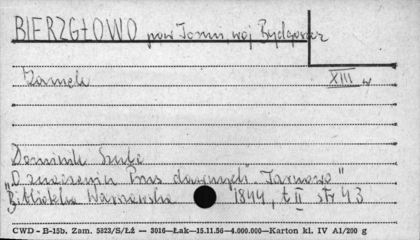 BIERZGŁOWO pow Toruń, woj Bydgoszcz
Zamek XIII w
Dominik Szulc
"O znaczeniu Prus dawnych" "
Biblioteka Warszawska 1844, t II str 43
CWD - B-15b. Zam. 5823/S/Łź — 3016—Łak—15.11.56—4.000.000—Karton kl. IV A1/200 g